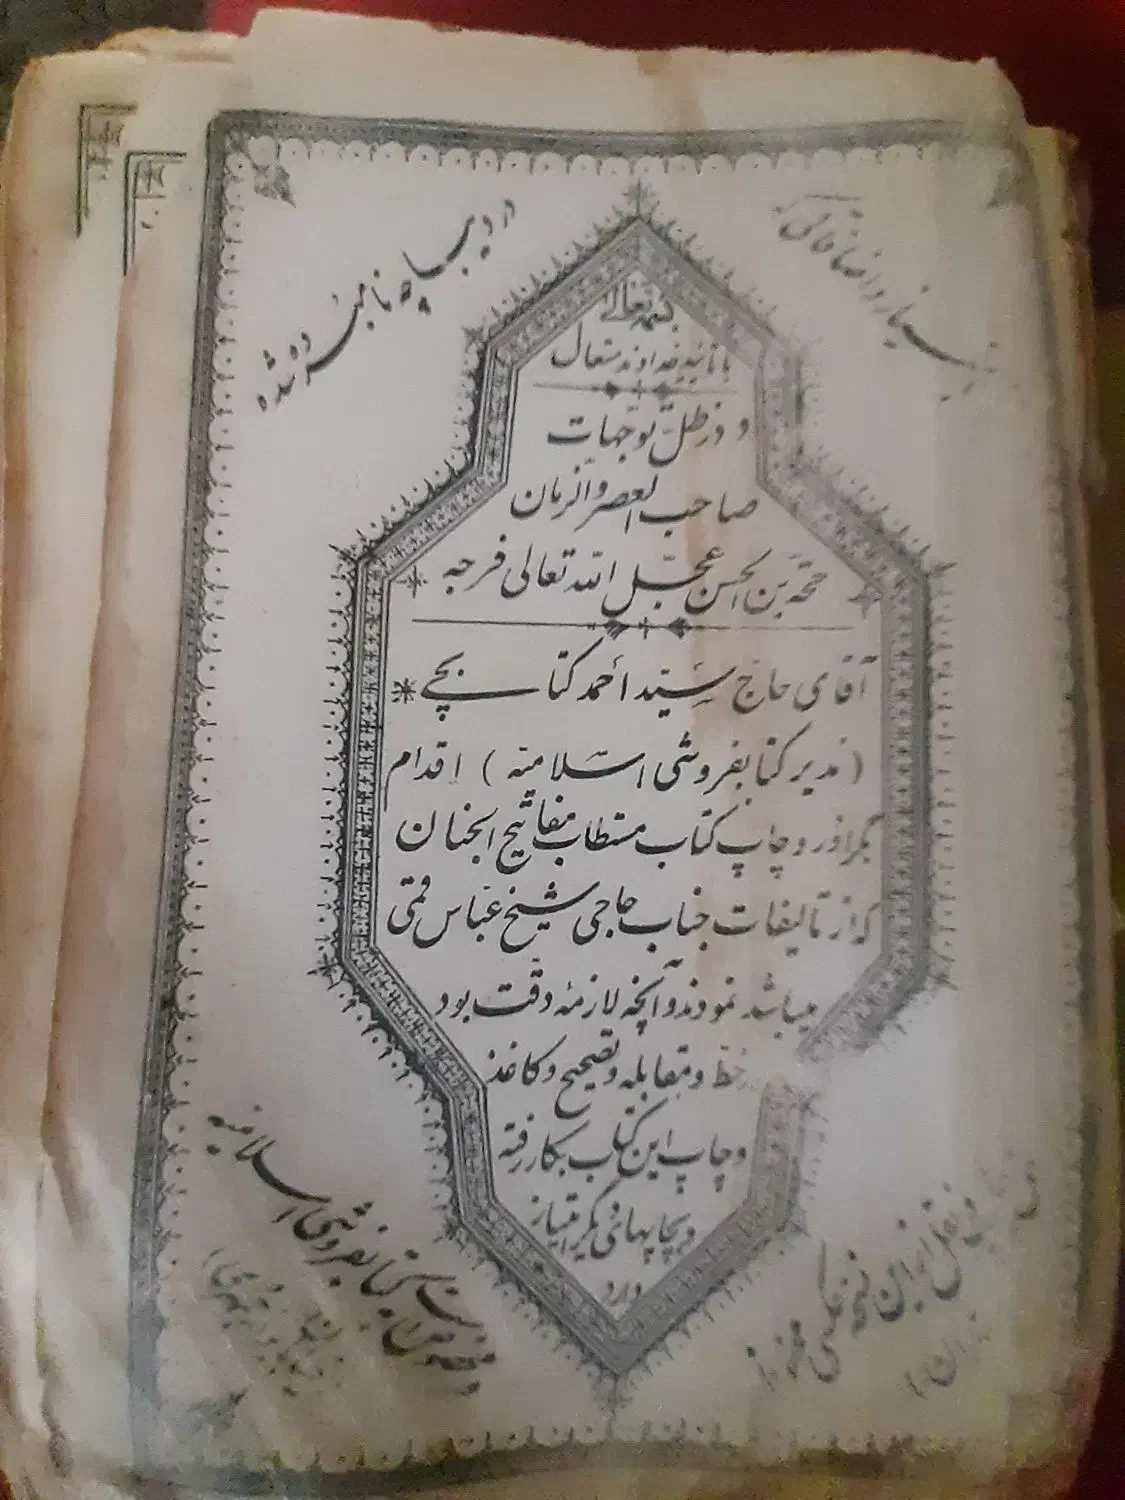 در دیباچه نامبرده شده
بسمه تعالی
با تائید خداوند متعال
و در ظلّ توجّهات
صاحب العصر والزمان
حجّة بن الحسن عجّل اللّه تعالی فرجه
آقای حاج سیّد احمد کتابچے
(مدیر کتابفروشی اسلامیّه) اقدام
بگراور و چاپ کتاب مستطاب مفاتیح الجنان
که از تألیفات جناب حاجی شیخ عبّاس قمّی
میباشد نمودند و آنچه لازمهٔ دقّت بود
خطّ و مقابله و تصحیح و کاغذ
و چاپ این کتاب بکار رفته
و بچاپهای دیگر امتیاز
دارد
کتابفروشی اسلامیّه